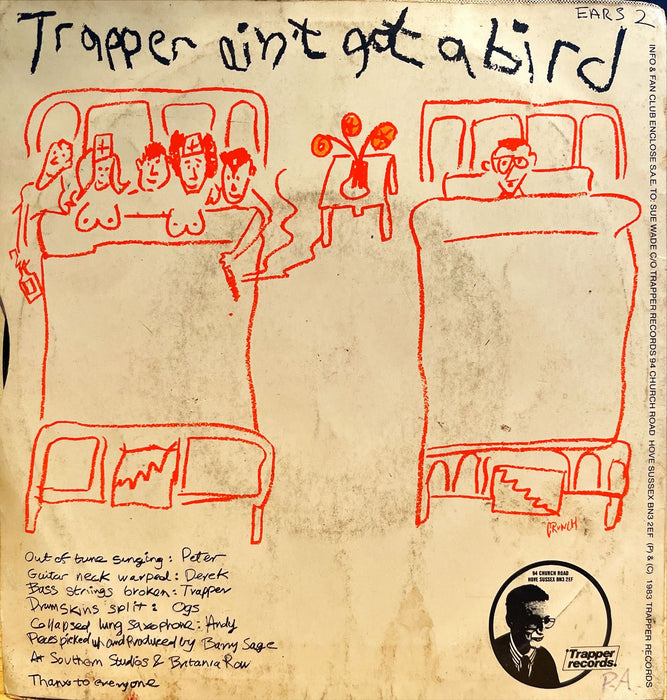 EARS 2
Trapper ain't got a bird
INFO & FAN CLUB ENCLOSE S.A.E. TO: SUE WADE C/O TRAPPER RECORDS 94 CHURCH ROAD HOVE SUSSEX BN3 2EF (P) & (C) 1983 TRAPPER RECORDS
CRUNCH
Out of tune singing: Peter
Guitar neck warped: Derek
Bass strings broken: Trapper
Drum skins split: Ogs
Collapsed lung saxophone: Andy
Peces picked up and Produced by Barry Sage
At Southern Studios & Britania Row
Thanx to everyone
94 CHURCH ROAD
HOVE SUSSEX BN3 2EF
Trapper
records.
RA